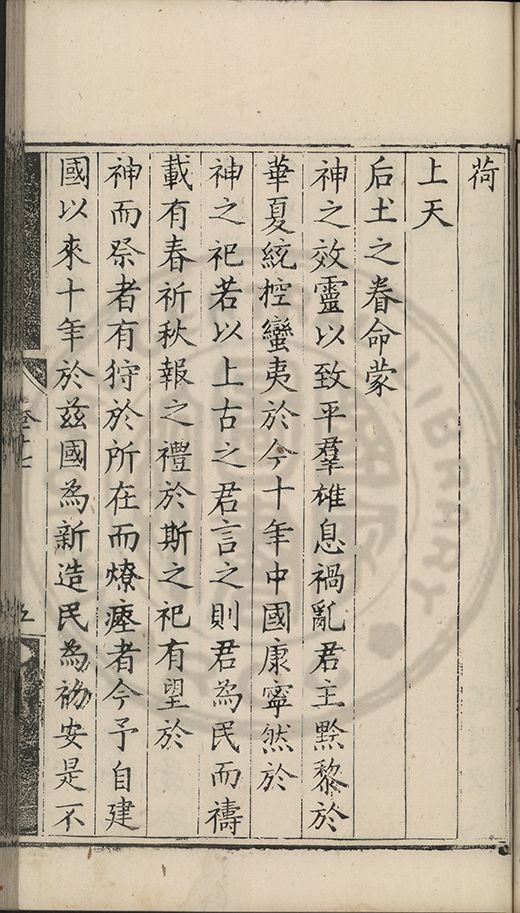 荷
上天
后土之眷命蒙
神之效靈以致平羣雄息禍亂君主黔黎於
華夏統控蠻夷於今十年中國康寧然於
神之祀若以上古之君言之則君為民而禱
載有春祈秋報之禮於斯之祀有望於
神而祭者有狩於所在而燎瘞者今予自建
國以來十年於茲國為新造民為初安是不
卷十七
五